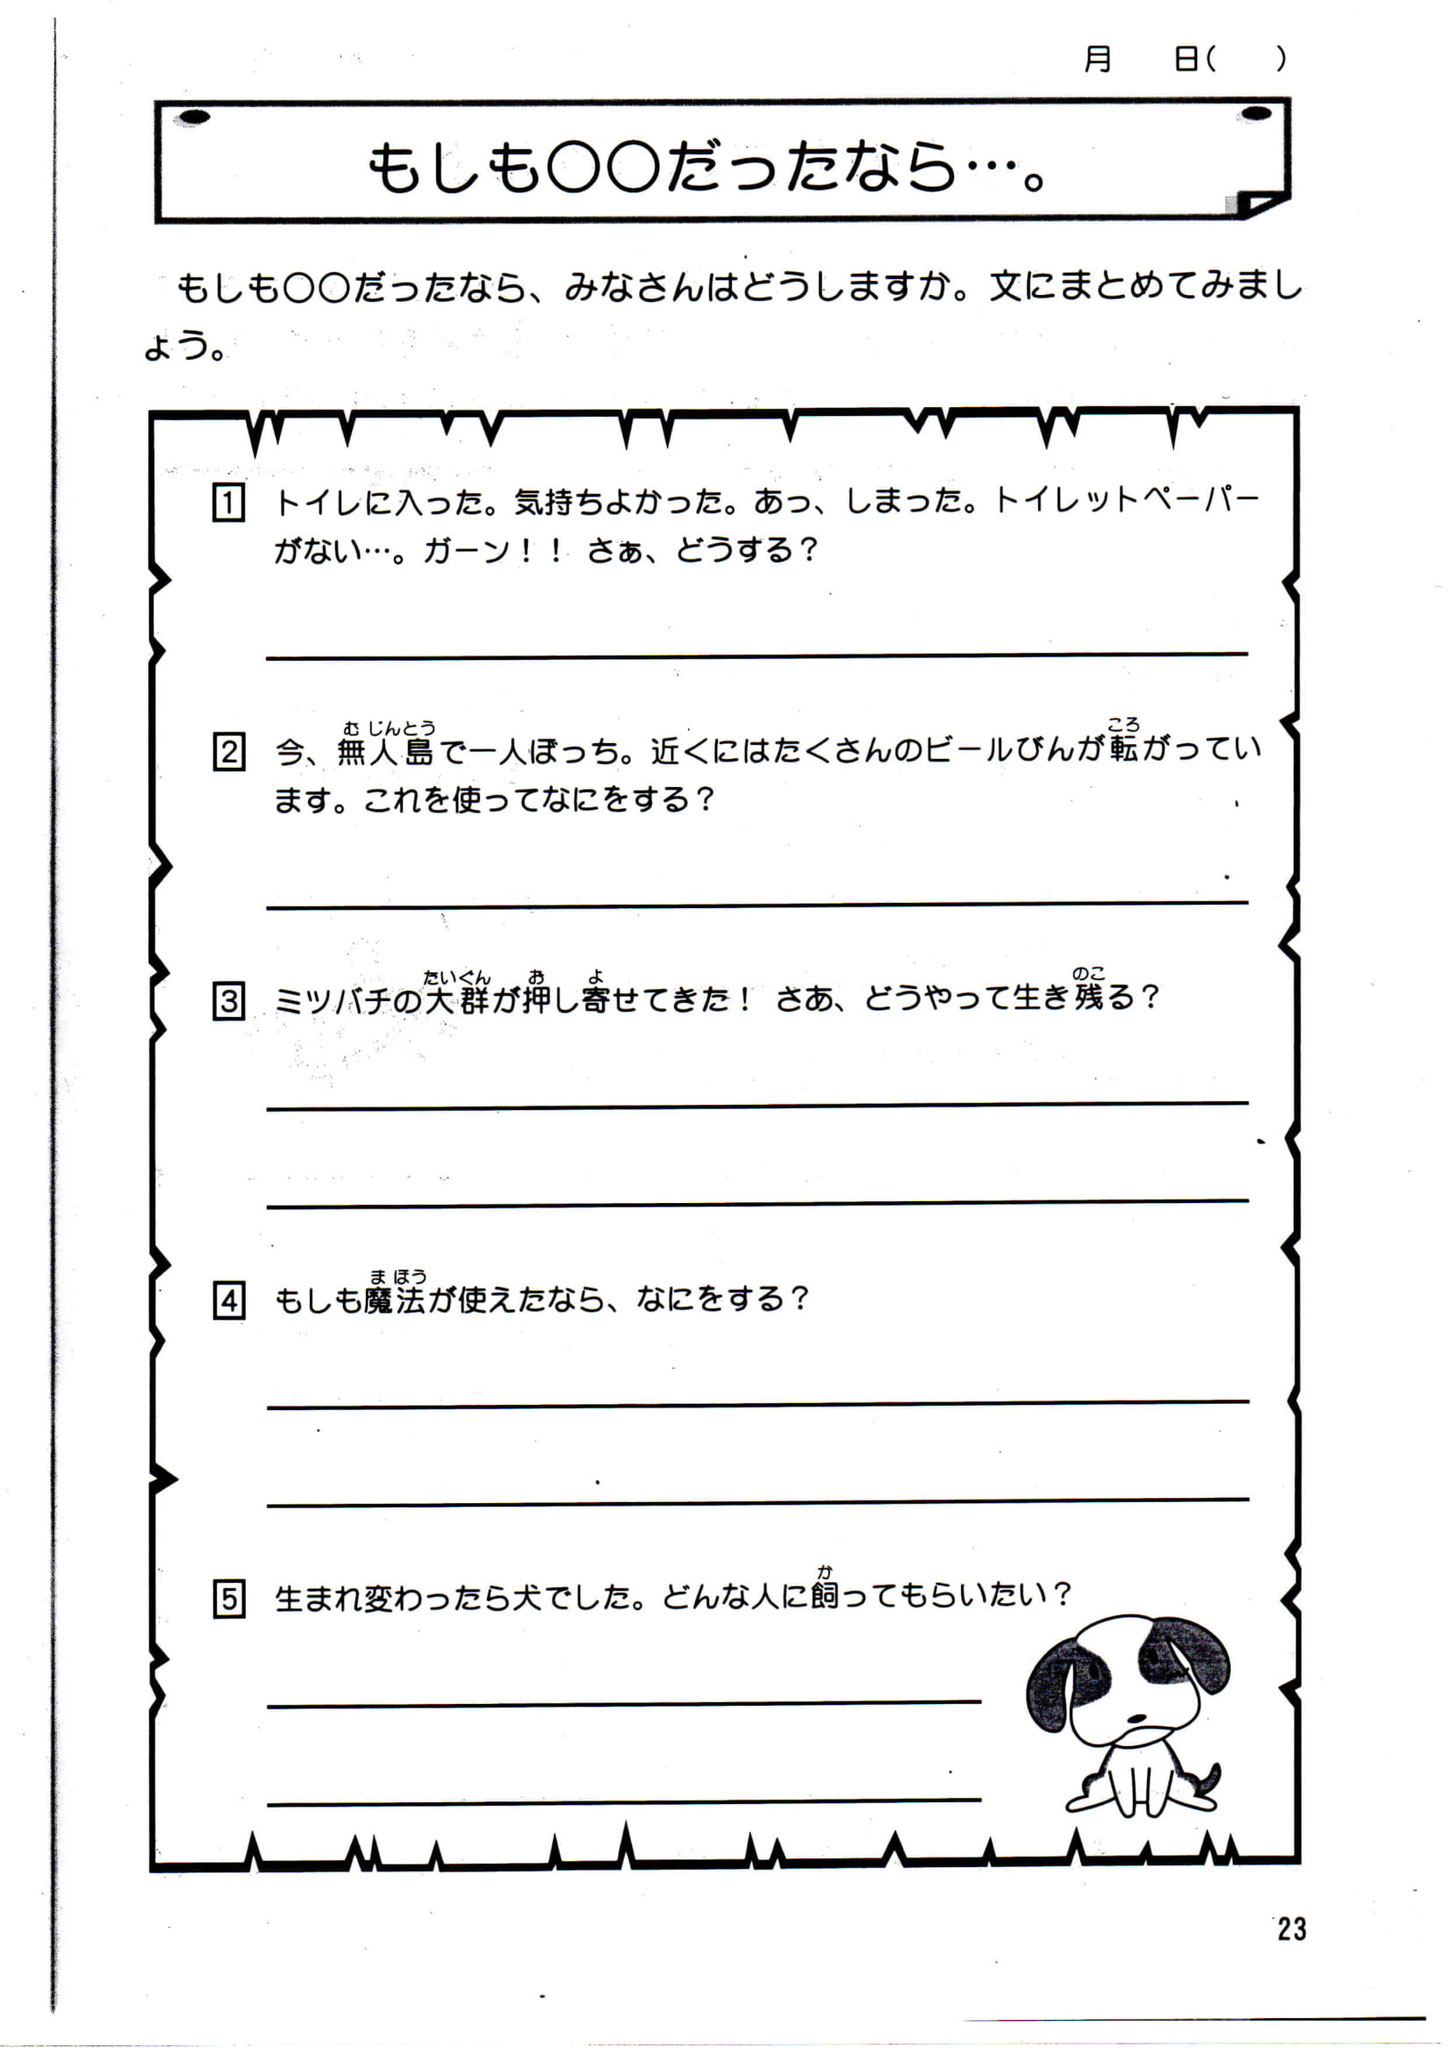 月　日(　)
もしも〇〇だったなら…。
もしも〇〇だったなら、みなさんはどうしますか。文にまとめてみまし
ょう。
1 トイレに入った。気持ちよかった。あっ、しまった。トイレットペーパー
がない…。ガーン！！ さぁ、どうする？
むじんとう ころ
2 今、無人島で一人ぼっち。近くにはたくさんのビールびんが転がってい
ます。これを使ってなにをする？
たいぐん お よ のこ
3 ミツバチの大群が押し寄せてきた！ さあ、どうやって生き残る？
まほう
4 もしも魔法が使えたなら、なにをする？
か
5 生まれ変わったら犬でした。どんな人に飼ってもらいたい？
23